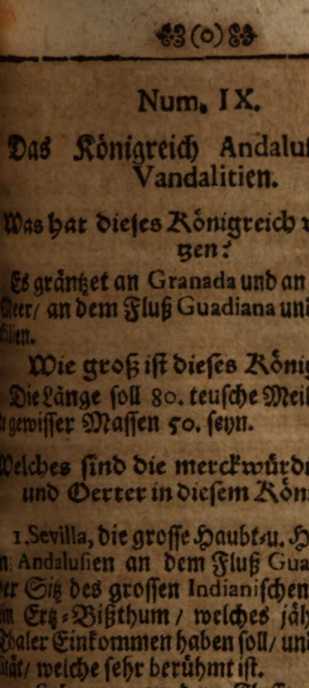 (o)
Num. IX.
Das Königreich Andalus
Vandalitien.
Was hat dieses Königreich
tzen?
Es gräntzet an Granada und an
Meer/ an dem Fluß Guadiana und
Wie groß ist dieses König
Die Länge soll 80. teusche Meil
gewisser Massen 50. seyn.
Welches sind die merckwürdi
und Oerter in diesem Kön
1. Sevilla, die grosse Haubt-u. H
Andalusien an dem Fluß Gua
der Sitz des grossen Indianischen
Ertz-Bißthum / welches jäh
Thaler Einkommen haben soll/ und
welche sehr berühmt ist.